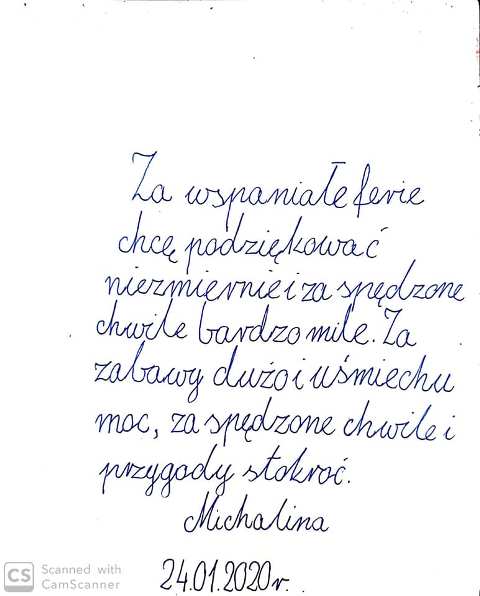 Za wspaniałe ferie
chcę podziękować
niezmiernie i za spędzone
chwile bardzo miłe. Za
zabawy dużo i uśmiechu
moc, za spędzone chwile i
przygody stokroć.
Michalina
24.01.2020r.
CS Scanned with
CamScanner